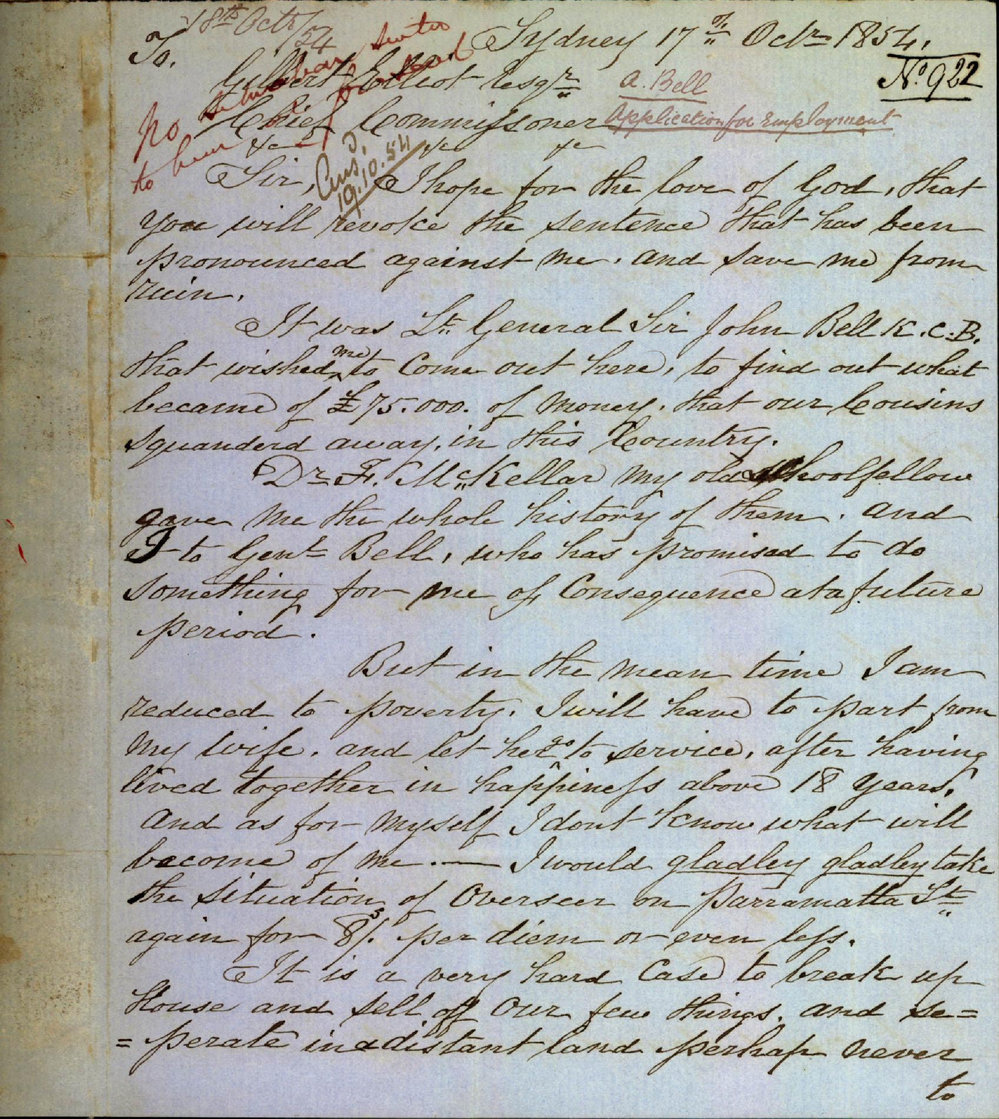 18th Octr/54
To. Sydney 17th Octr 1854.
No 922
Gilbert Elliot Esqr
A. Bell
Chief Commissioner
Application for Employment
&c &c &c
no
to him
19.10.54
Sir, I hope for the love of God, that
you will revoke the sentence that has been
pronounced against me. and save me from
ruin.
It was Lt. General Sir John Bell K.C.B.
that wished me to come out here, to find out what
became of £75.000. of money. that our Cousins
squanderd away, in this Country.
Dr F. McKellar my old schoolfellow
gave me the whole history of them. and
I to Genl. Bell, who has promised to do
something for me of Consequence at a future
period.
But in the mean time I am
reduced to poverty. I will have to part from
my wife. and let her go to service, after having
lived together in happiness above 18 years,
and as for myself I dont know what will
become of me. — I would gladley gladley take
the situation of Overseer on Parramatta St.
again for 8/s per diem or even less.
It is a very hard Case to break up
House and sell off our few things. and se=
=perate in a distant land perhap never
to